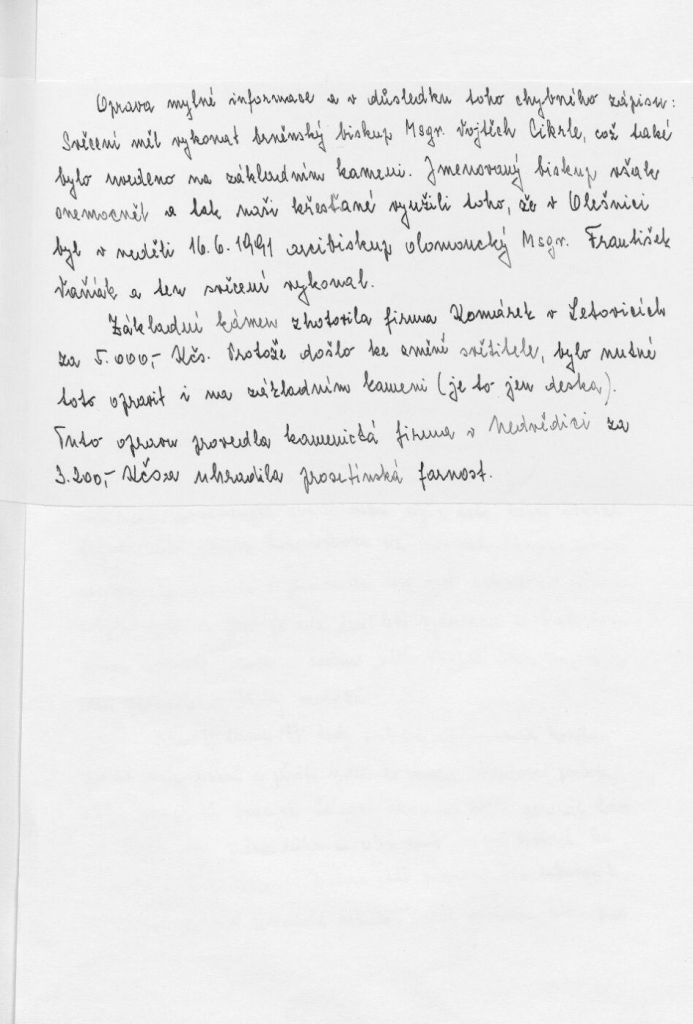 Oprava mylné informace a v důsledku toho chybného zápisu:
Svěcení měl vykonat brněnský biskup Msgr. Vojtěch Cikrle, což také
bylo uvedeno na základním kameni. Jmenovaný biskup však
onemocněl a tak naši křesťané využili toho, že v Olešnici
byl v neděli 16.6.1991 arcibiskup olomoucký Msgr. František
Vaňák a ten svěcení vykonal.
Základní kámen zhotovila firma Komárek v Letovicích
za 5.000,- Kčs. Protože došlo ke změně světitele, bylo nutné
toto opravit i na základním kameni (je to jen deska).
Tuto opravu provedla kamenická firma v Nedvědici za
3.200,- Kčs a uhradila prosetínská farnost.